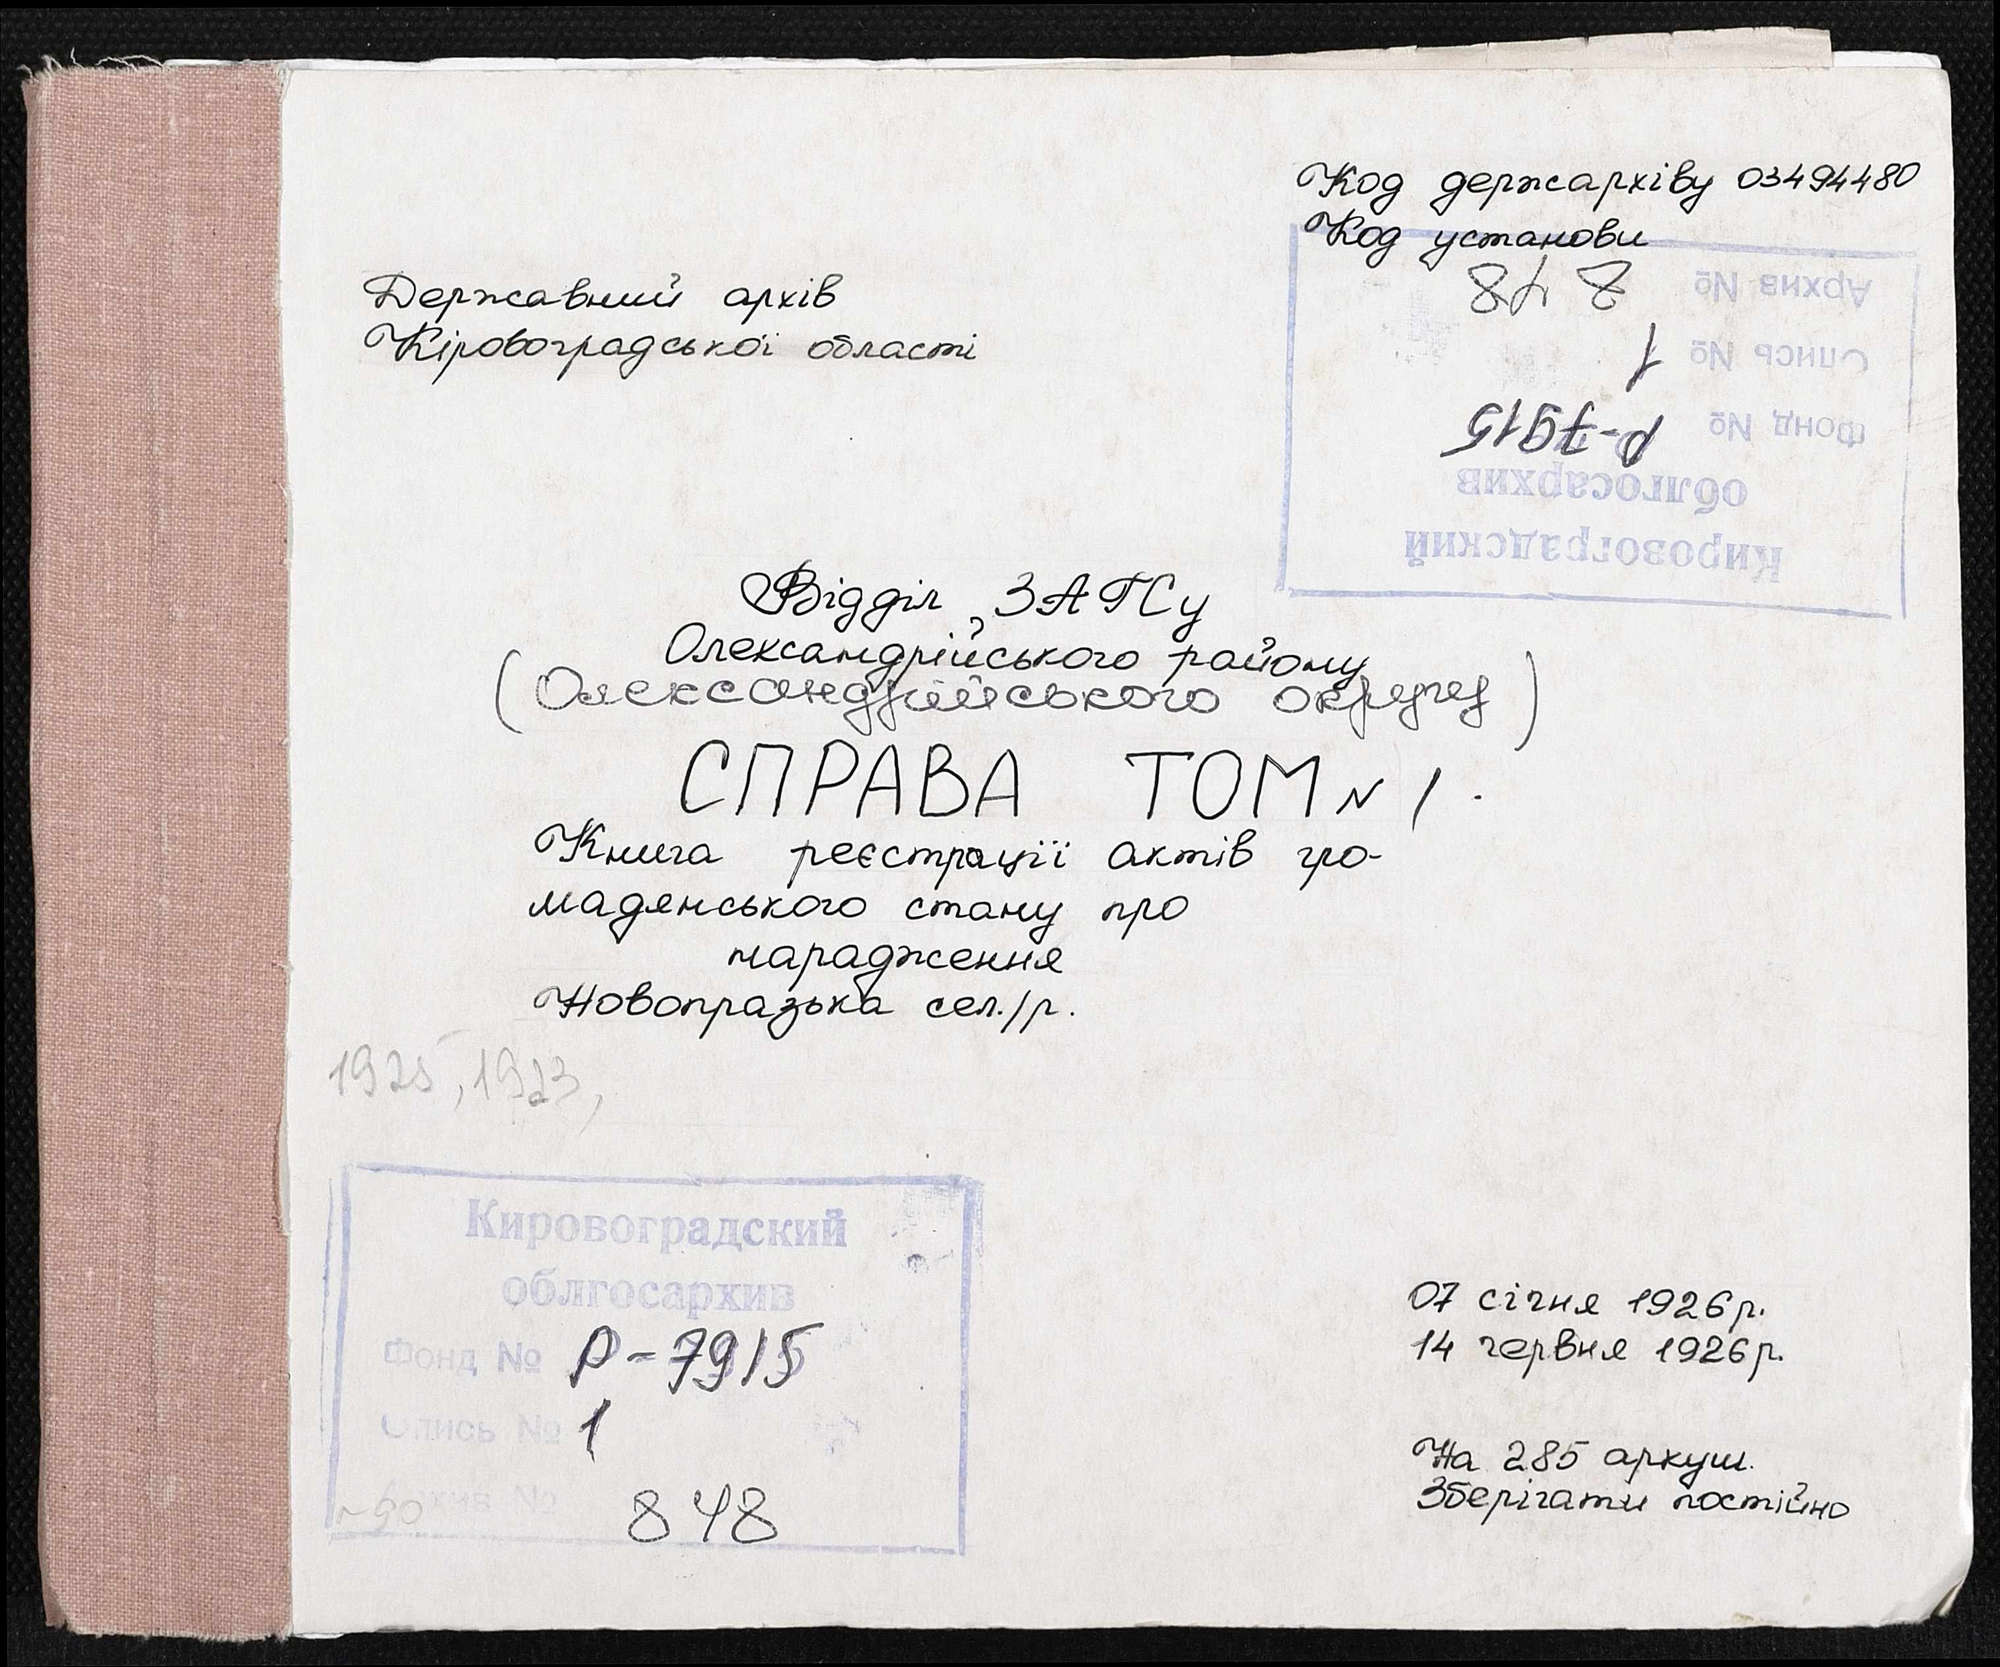 Код держархіву 03494480
Код установи
Державний архів
Кіровоградської області
Кировоградский
облгосархив
Фонд № Р-7915
Опись № 1
Архив № 848
Відділ ЗАГСу
Олександрійського району
(Олександрійського округу)
СПРАВА ТОМ N 1.
Книга реєстрації актів гро-
мадянського стану про
народження
Новопразька сел./р.
1925, 1923,
Кировоградский
облгосархив
Фонд № Р-7915
Опись № 1
Архив № 848
07 січня 1926 р.
14 червня 1926 р.
На 285 аркуш.
Зберігати постійно